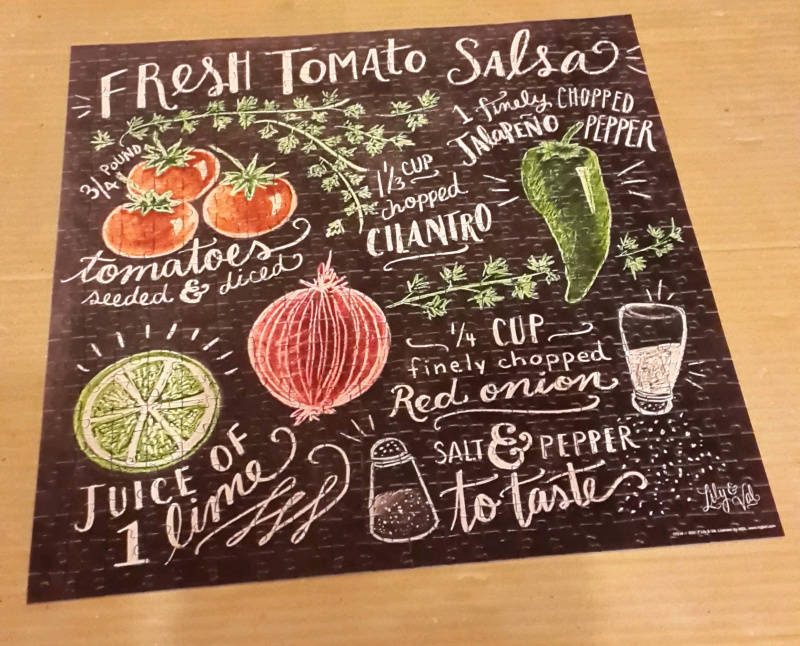 FRESH TOMATO SALSA
3/4 POUND
tomatoes
seeded & diced
1/3 CUP
chopped
CILANTRO
1 finely CHOPPED
JALAPEÑO PEPPER
1/4 CUP
finely chopped
Red onion
JUICE OF
1 lime
SALT & PEPPER
to taste
Lily & Val